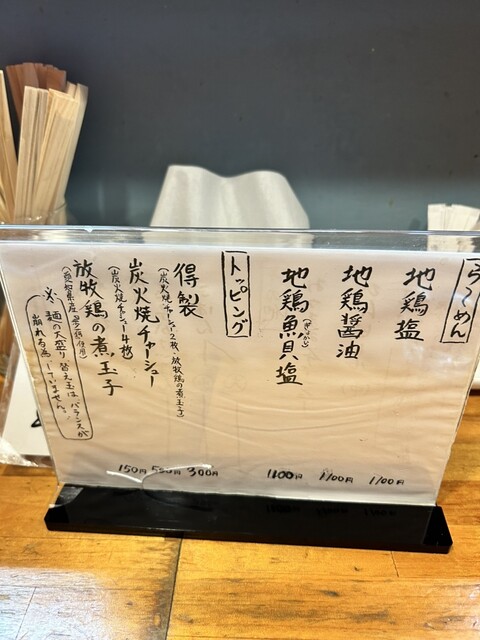 らーめん
地鶏塩 1100円
地鶏醤油 1100円
地鶏魚貝塩 1100円
トッピング
得製 300円
(炭火焼チャーシュー2枚、放牧鶏の煮玉子)
炭火焼チャーシュー 500円
(炭火焼チャーシュー4枚)
放牧鶏の煮玉子 150円
※麺の大盛り 替え玉は バランスが
崩れる為 していません。